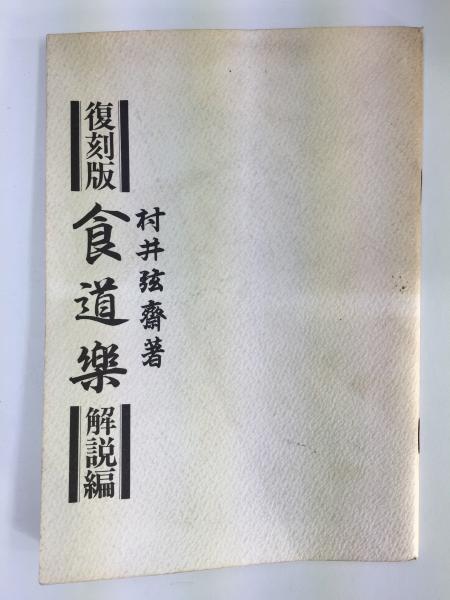 村井弦齋著
復刻版
食道樂
解説編